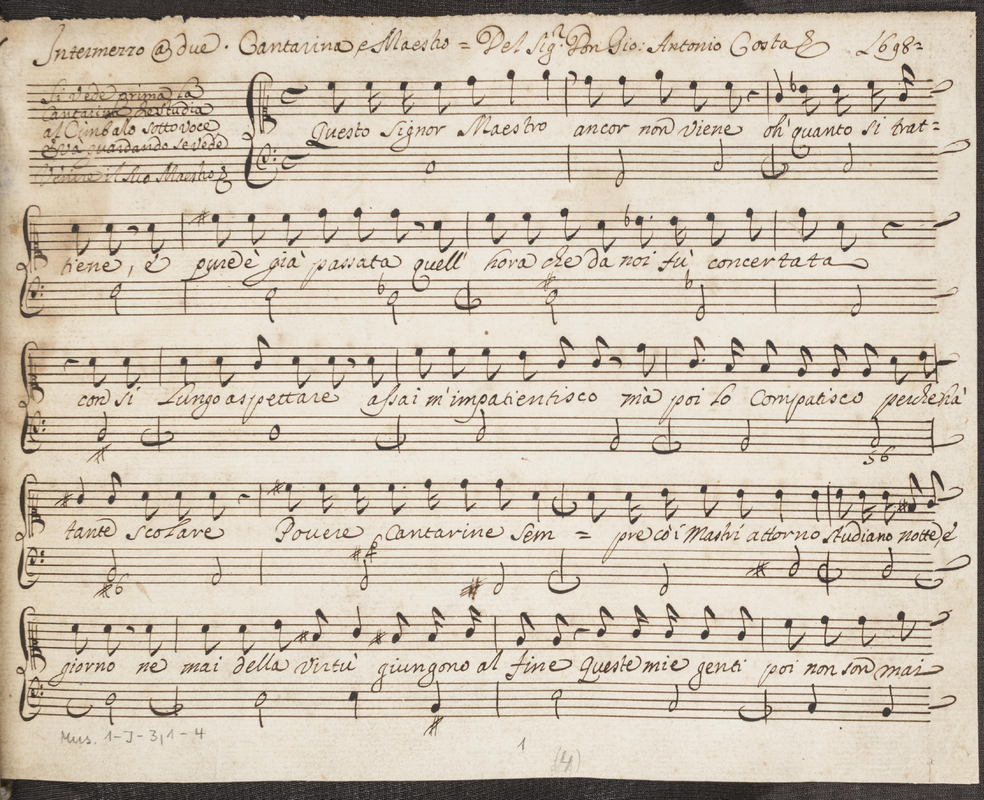 Intermezzo @ due. Cantarina e Maestro = Del Sigr. Don Gio: Antonio Costa & 1698=
Si vede prima la
Cantarina che studia
al Cimbalo sotto voce
& và guardando se vede
Venire il Suo Maestro &
Questo Signor Maestro ancor non viene oh' quanto si trat=
tiene, e pure è già passata quell' hora che da noi fù concertata
con sì Lungo aspettare assai m'impatientisco mà poi lo Compatisco perche hà
56
tante scolare Povere Cantarine Sem = pre cò i Mastri attorno studiano notte, e
#6
giorno ne mai della virtù giungono al fine Queste mie genti poi non son mai
Mus. 1-J-3,1-4
1
(4)